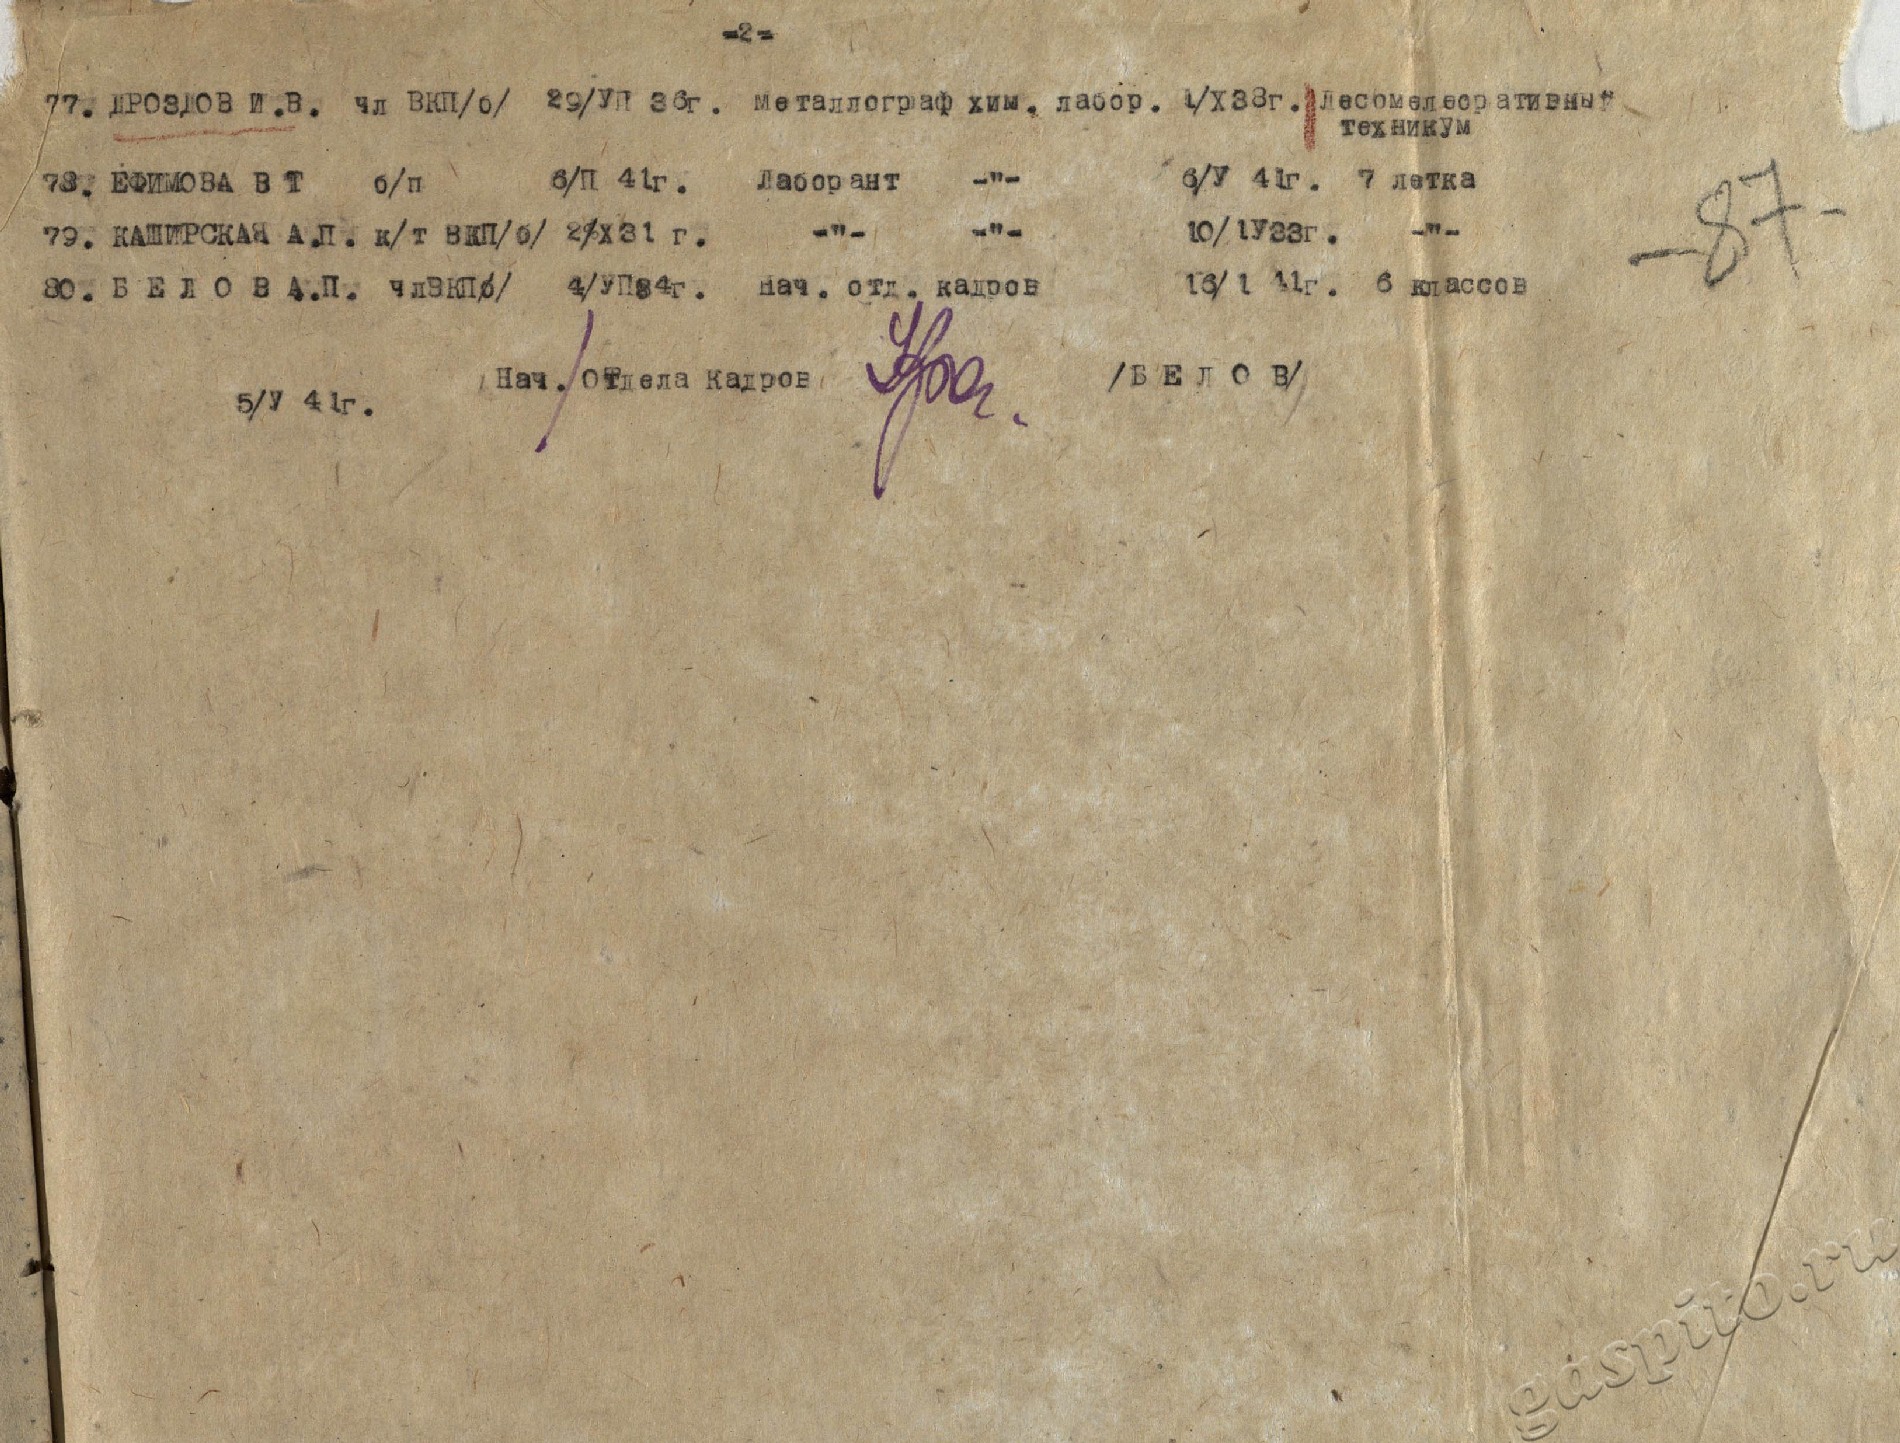 -2-
77. ДРОЗДОВ И.В. чл ВКП/б/ 29/УП 36г. Металлограф хим. лабор. 1/Х38г. Лесомелеоративный
техникум
78. ЕФИМОВА В Т б/п 6/П 41г. Лаборант -"- 6/У 41г. 7 летка
79. КАШИРСКАЯ А.П. к/т ВКП/б/ 2/Х31 г. -"- -"- 10/1У33г. -"-
80. Б Е Л О В А.П. члВКПб/ 4/УП34г. Нач. отд. кадров 16/1 41г. 6 классов
-87-
Нач. Отдела Кадров /Б Е Л О В/
5/У 41г.
gaspito.ru